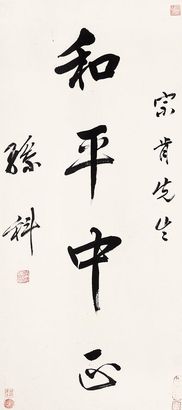 宗肯先生
和平中正
孫科